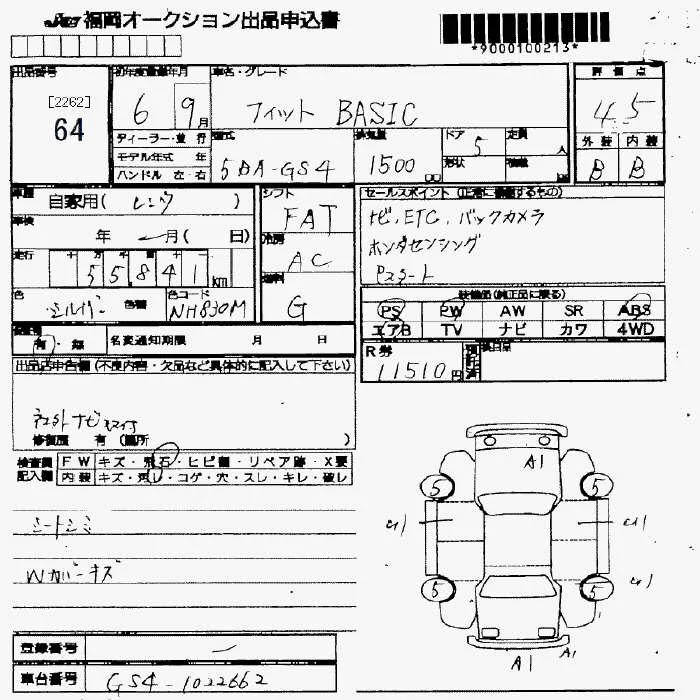 福岡オークション出品申込書
*9000100213*
出品番号
[2262]
64
初年度登録年月
6 9月
車名・グレード
フィット BASIC
評価点
4.5
ディーラー・並行
モデル年式 年
ハンドル 左・右
型式
5BA-GS4
排気量
1500
ドア
5
形状
定員
人
積載
外装 内装
B B
車歴
自家用( レンタ )
車検
年 月( 日)
走行
55841km
色
シルバー 色替
色コード
NH830M
シフト
FAT
冷房
AC
燃料
G
セールスポイント(正常に機能するもの)
ナビ,ETC,バックカメラ
ホンダセンシング
Pスタート
装備品(純正品に限る)
PS PW AW SR ABS
エアB TV ナビ カワ 4WD
有・無
名変通知期限 月 日
R券
11510円
出品店申告欄(不良内容・欠品など具体的に記入して下さい)
社外ナビ
修復歴 有(箇所 )
検査員記入欄
FW キズ・飛石・ヒビ割・リペア跡・X要
内装 キズ・汚レ・コゲ・穴・スレ・キレ・破レ
シートシミ
Wカバーキズ
A1
5 5
5 5
A1 A1
登録番号
車台番号 GS4-1022662